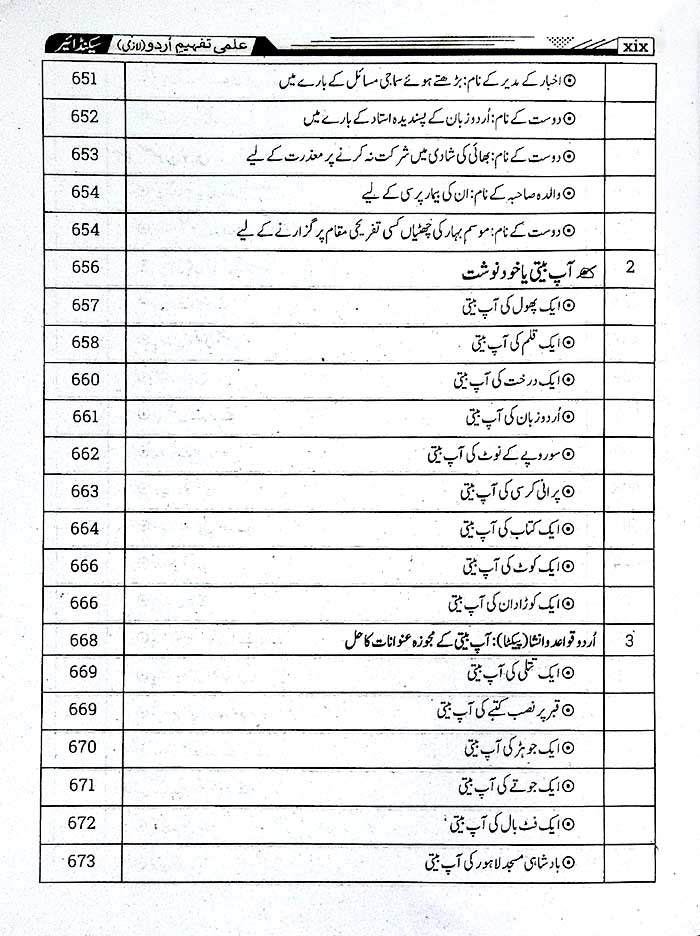 xix علمی تفہیمِ اُردو (لازمی) سیکنڈ ایئر
⊙ اخبار کے مدیر کے نام: بڑھتے ہوئے سماجی مسائل کے بارے میں 651
⊙ دوست کے نام: اُردو زبان کے پسندیدہ استاد کے بارے میں 652
⊙ دوست کے نام: بھائی کی شادی میں شرکت نہ کرنے پر معذرت کے لیے 653
⊙ والدہ صاحبہ کے نام: ان کی بیمار پرسی کے لیے 654
⊙ دوست کے نام: موسم بہار کی چھٹیاں کسی تفریحی مقام پر گزارنے کے لیے 654
2 آپ بیتی یا خود نوشت 656
⊙ ایک پھول کی آپ بیتی 657
⊙ ایک قلم کی آپ بیتی 658
⊙ ایک درخت کی آپ بیتی 660
⊙ اُردو زبان کی آپ بیتی 661
⊙ سو روپے کے نوٹ کی آپ بیتی 662
⊙ پرانی کرسی کی آپ بیتی 663
⊙ ایک کتاب کی آپ بیتی 664
⊙ ایک کوٹ کی آپ بیتی 666
⊙ ایک کوڑا دان کی آپ بیتی 666
3 اُردو قواعد و انشا (پیکٹا): آپ بیتی کے مجوزہ عنوانات کا حل 668
⊙ ایک تتلی کی آپ بیتی 669
⊙ قبر پر نصب کتبے کی آپ بیتی 669
⊙ ایک جوہڑ کی آپ بیتی 670
⊙ ایک جوتے کی آپ بیتی 671
⊙ ایک فٹ بال کی آپ بیتی 672
⊙ بادشاہی مسجد لاہور کی آپ بیتی 673